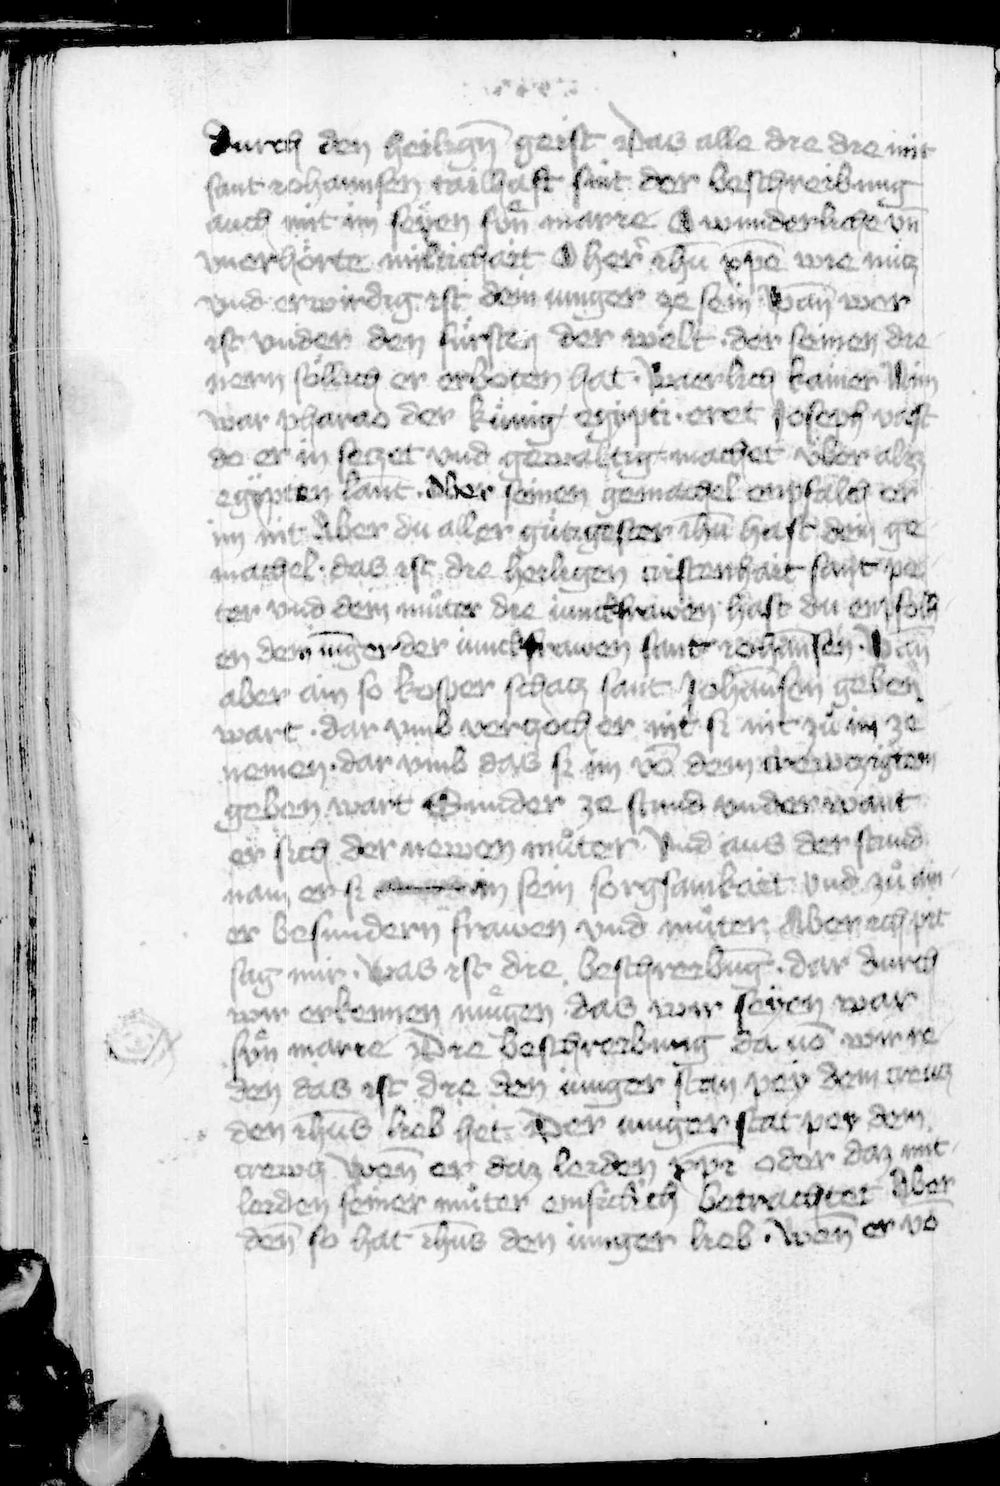 Durch den heilign̄ geist Das alle die die mit
sant iohannsen tailhaft sint der beschreibung
auch mit im seÿen sün marie O wunderliche vn̄
vnerhörte miltichait O her ih̄u xp̄e wie nucz
vnd erwirdig ist dein iunger ze sein Wan̄ wer
ist vnder den fürsten der welt · der seinen die
nern söllich er erboten hat · Waerlich kainer Nim
war pharao der künig egipti · eret Joseph vast
do er in seczet vnd gewaltig machet über alcz
egÿpten lant · Aber seinen gemachel enpfalch er
im nit Aber du aller gütigester ih̄u hast dein ge
machel · das ist die heiligen cristenhait sant pe
ter vnd dein müter die iunckfrawen hast du enpfolh
en dem iunger der iunckfrawen sant iohansen · Wan̄
aber ain so kosper schacz sant Johansen geben
wart · dar vmb verzoch er nit si nit zů im ze
nemen · dar vmb das si im vō dem crewczigten
geben wart Sunder ze stund vnderwant
er sich der newen můter Vnd aus der stund
nam er si in sein sorgsamkait vnd zů ain
er besundern frawen vnd můter Aber ich pit
sag mir · Was ist die beschreibung · dar durch
wir erkennen mügen das wir seÿen war
sün marie Die beschreibung da uō wir re
den das ist die den iunger stan peÿ dem creucz
den ih̄us lieb het Der iunger stat peÿ dem
crewcz Wen̄ er daz leiden xp̄i oder daz mit
leiden seiner můter emsiclich betrachtet Aber
den̄ so hat ih̄us den iunger lieb · Wen̄ er vō